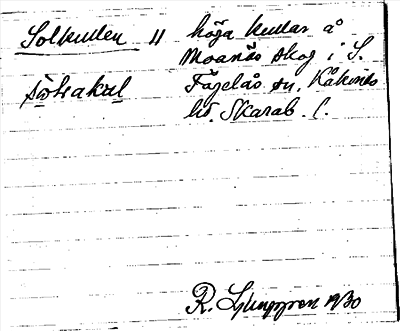 Solkullen ll höga kullar å
Moanäs skog i S.
Fågelås sn, Kåkinds
hd. Skarab. l.
R. Ljunggren 1930